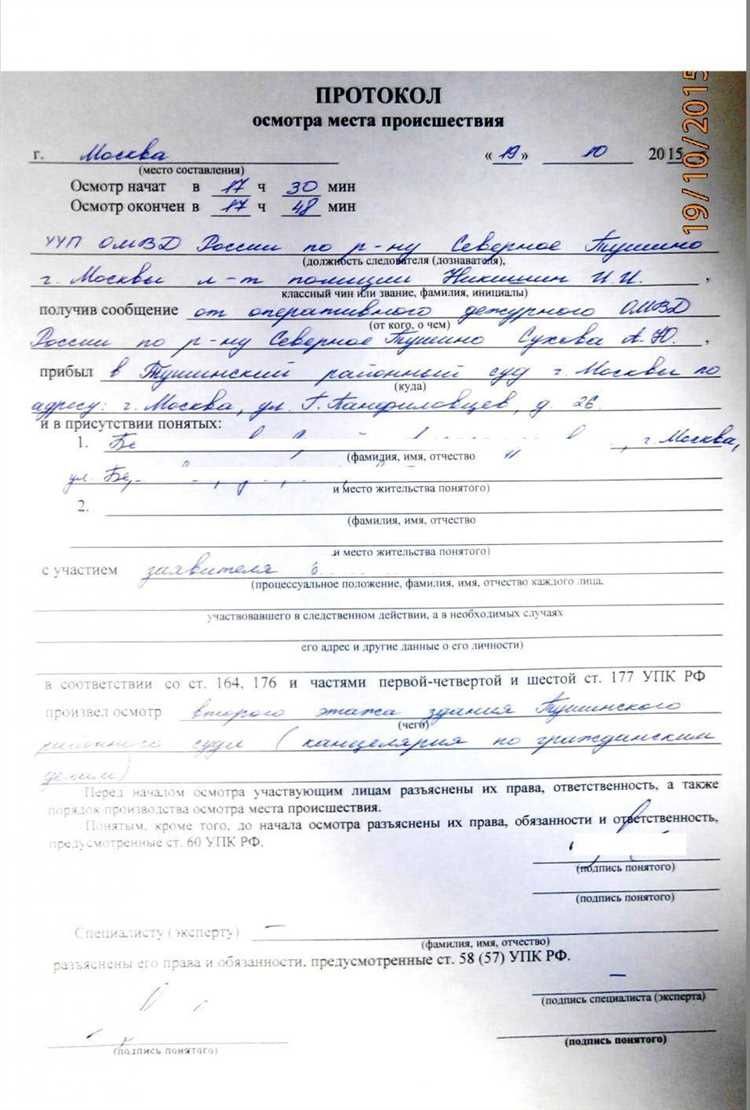 19/10/2015
ПРОТОКОЛ
осмотра места происшествия
г. Москва «19» 10 2015
(место составления)
Осмотр начат в 17 ч 30 мин
Осмотр окончен в 17 ч 48 мин
УУП ОМВД России по р-ну Северное Тушино
(должность следователя (дознавателя),
г. Москвы л-т полиции Никишин И.И. ,
классный чин или звание, фамилия, инициалы)
получив сообщение от оперативного дежурного ОМВД
(от кого, о чем)
России по р-ну Северное Тушино Сухова А.Ю. ,
прибыл в Тушинский районный суд г. Москвы по
(куда)
адресу: г. Москва, ул. Г. Панфиловцев, д. 26
и в присутствии понятых:
1. Бе , г. Москва,
(фамилия, имя, отчество
ул.
и место жительства понятого)
2.
(фамилия, имя, отчество
и место жительства понятого)
с участием заявителя
(процессуальное положение, фамилия, имя, отчество каждого лица,
участвовавшего в следственном действии, а в необходимых случаях
его адрес и другие данные о его личности)
в соответствии со ст. 164, 176 и частями первой-четвертой и шестой ст. 177 УПК РФ
произвел осмотр второго этажа здания Тушинского
(чего)
районного суда (канцелярия по гражданским
делам)
Перед началом осмотра участвующим лицам разъяснены их права, ответственность, а также
порядок производства осмотра места происшествия.
Понятым, кроме того, до начала осмотра разъяснены их права, обязанности и ответственность,
предусмотренные ст. 60 УПК РФ.
(подпись понятого)
(подпись понятого)
Специалисту (эксперту) –
(фамилия, имя, отчество)
разъяснены его права и обязанности, предусмотренные ст. 58 (57) УПК РФ.
–
(подпись специалиста (эксперта)
(подпись понятого) (подпись понятого)